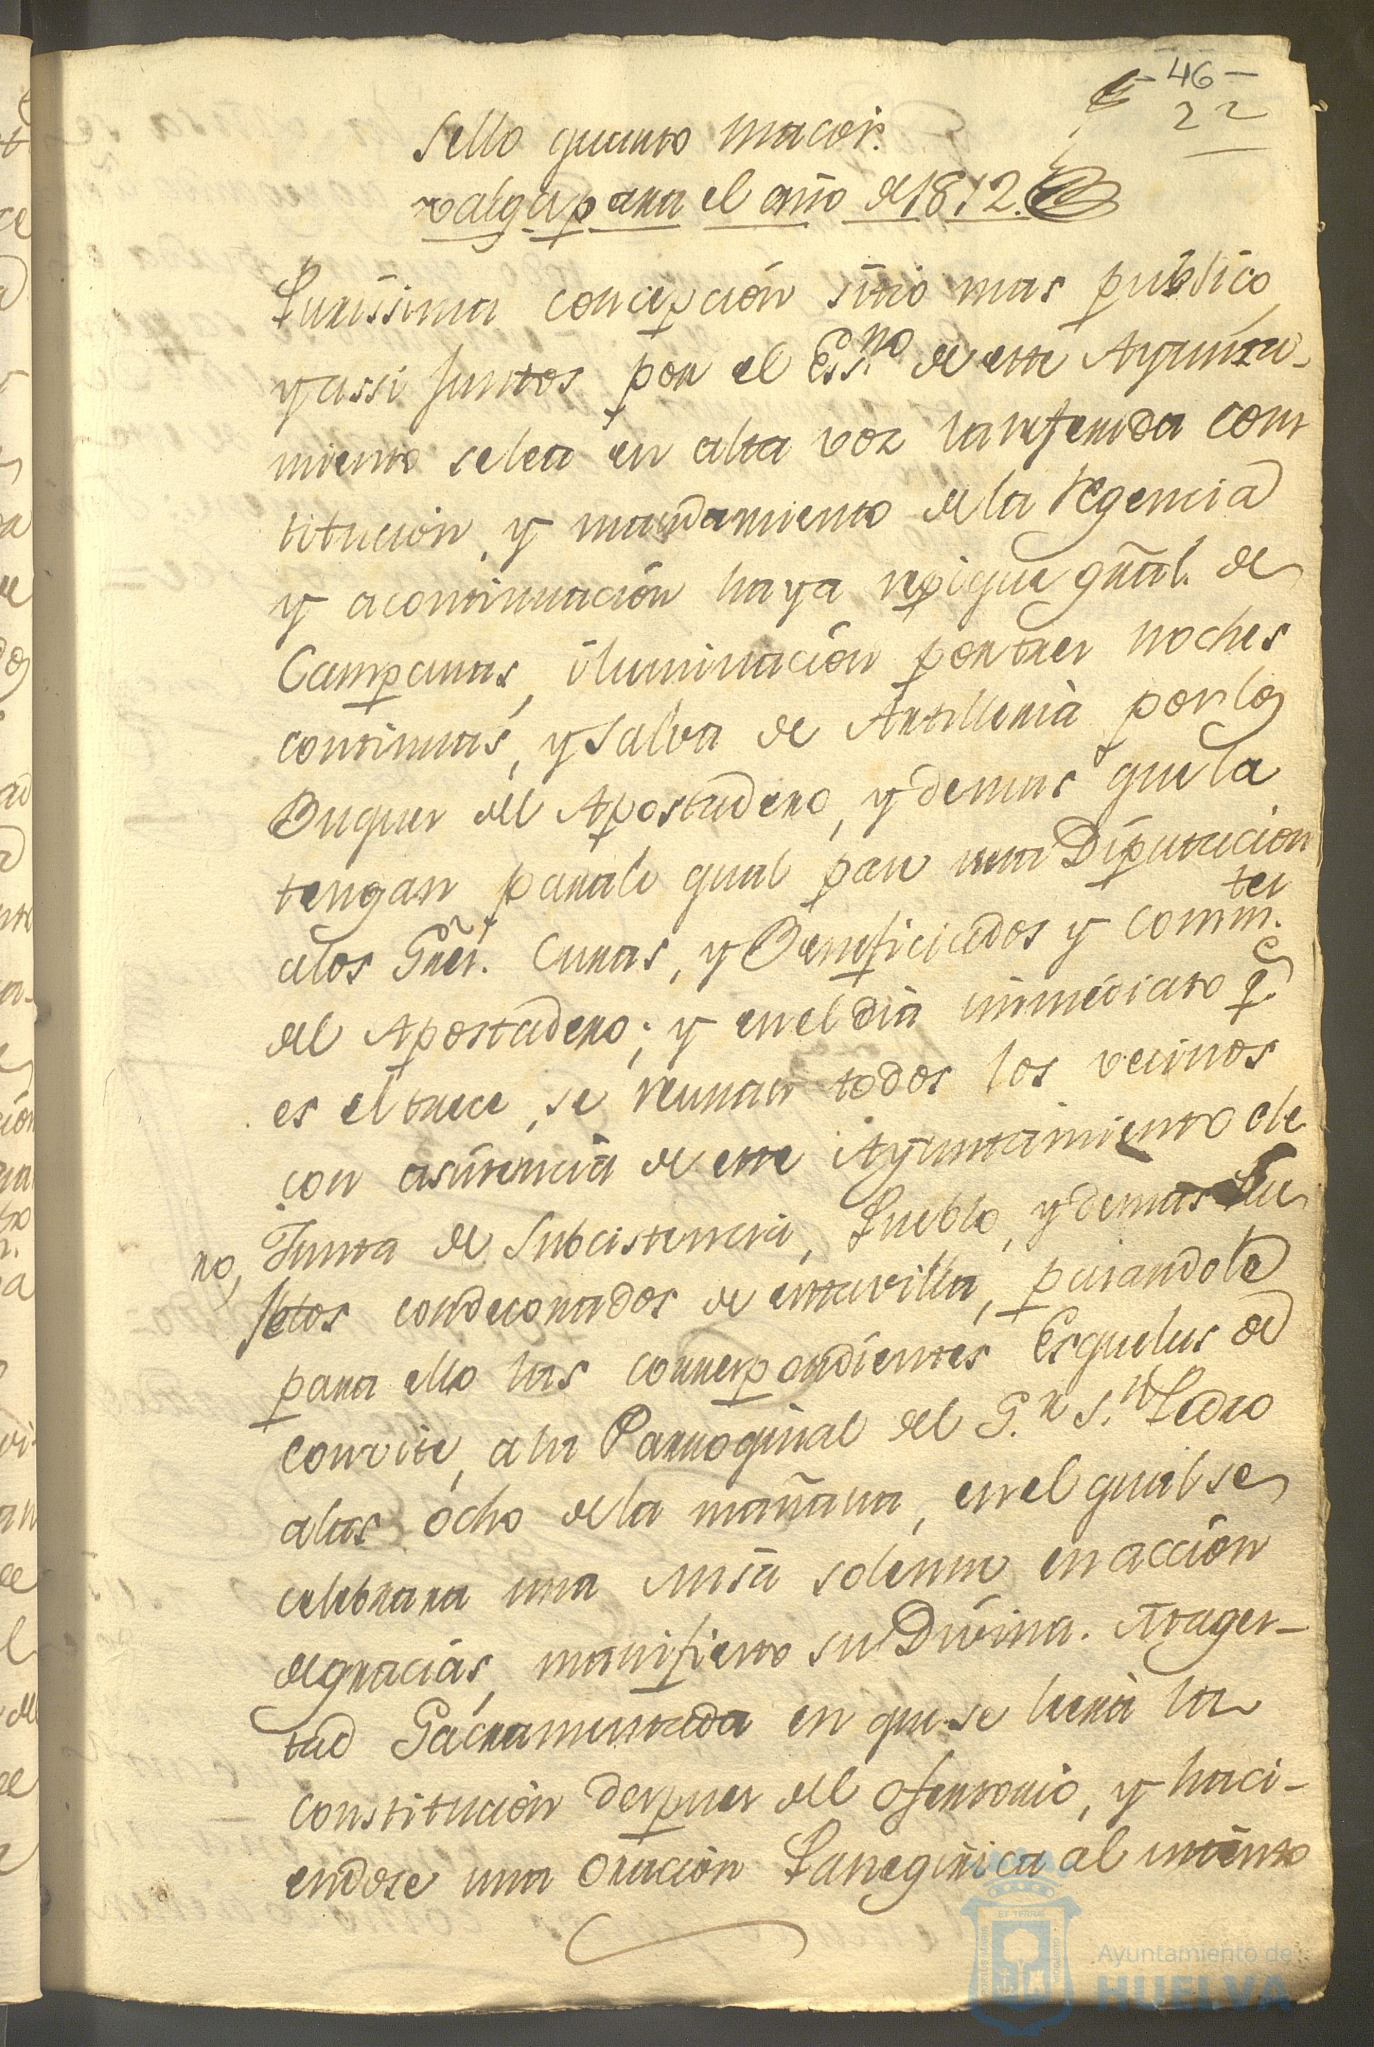 - 46 -
22
Sello quarto maior.
valga para el año de 1812.
Purissima concepción sitio mas publico,
y assi juntos por el Ess.no de este Ayunta-
miento se lea en alta voz la referida cons
titucion, y mandamiento de la Regencia
y acontinuación haya repique gñal. de
Campanas, iluminación por tres noches
continuas, y salva de Artilleria por los
Buques del Apostadero, y demas que la
tengan para lo qual pase una Diputacion
a los Sres. Curas, y Beneficiados y Comm.tes
del Apostadero; y en el dia inmediato q.e
es el trece, se reunan todos los vecinos
con asistencia de este Ayuntamiento de
Junta de Subcistencia, Pueblo, y demas Sue
no, jetos condecorados de esta villa, pasandole
para ello las correspondientes Esquelas de
convite, a la Parroquial del S.r S.n Pedro
a las ocho de la mañana, en el qual se
celebrara una misa solemne en acción
de gracias, manifiesto su Divina. Mages-
tad Sacramentada en que se leera la
constitución despues del ofertorio, y haci-
endose una oración Panegirica al intento
Ayuntamiento de
HUELVA